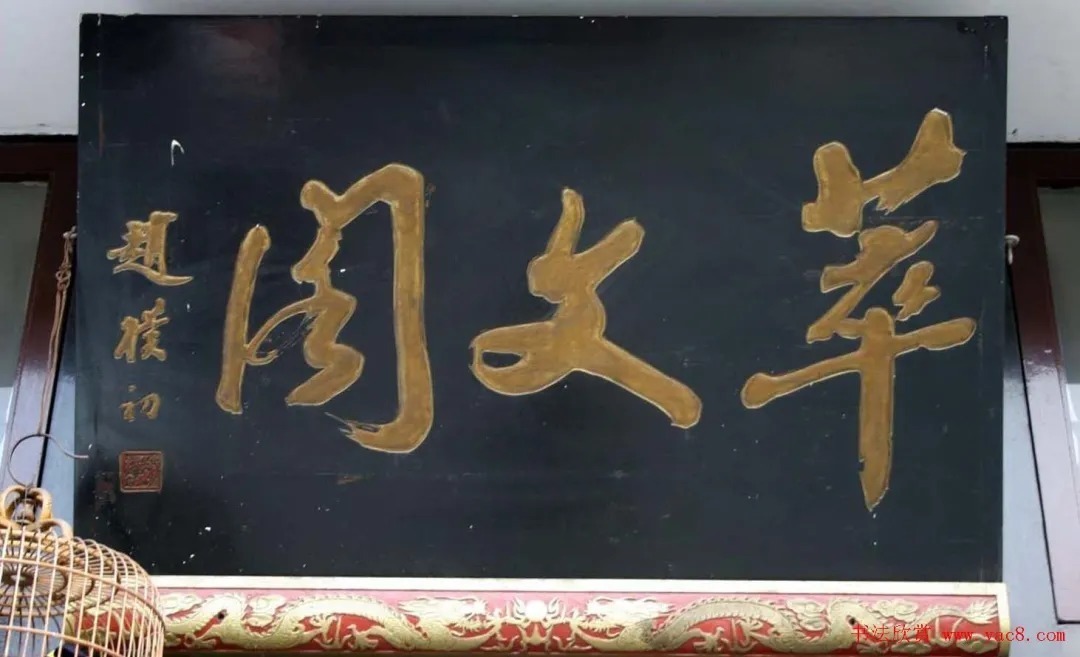 萃文阁
趙樸初
书法欣赏 www.yac8.com